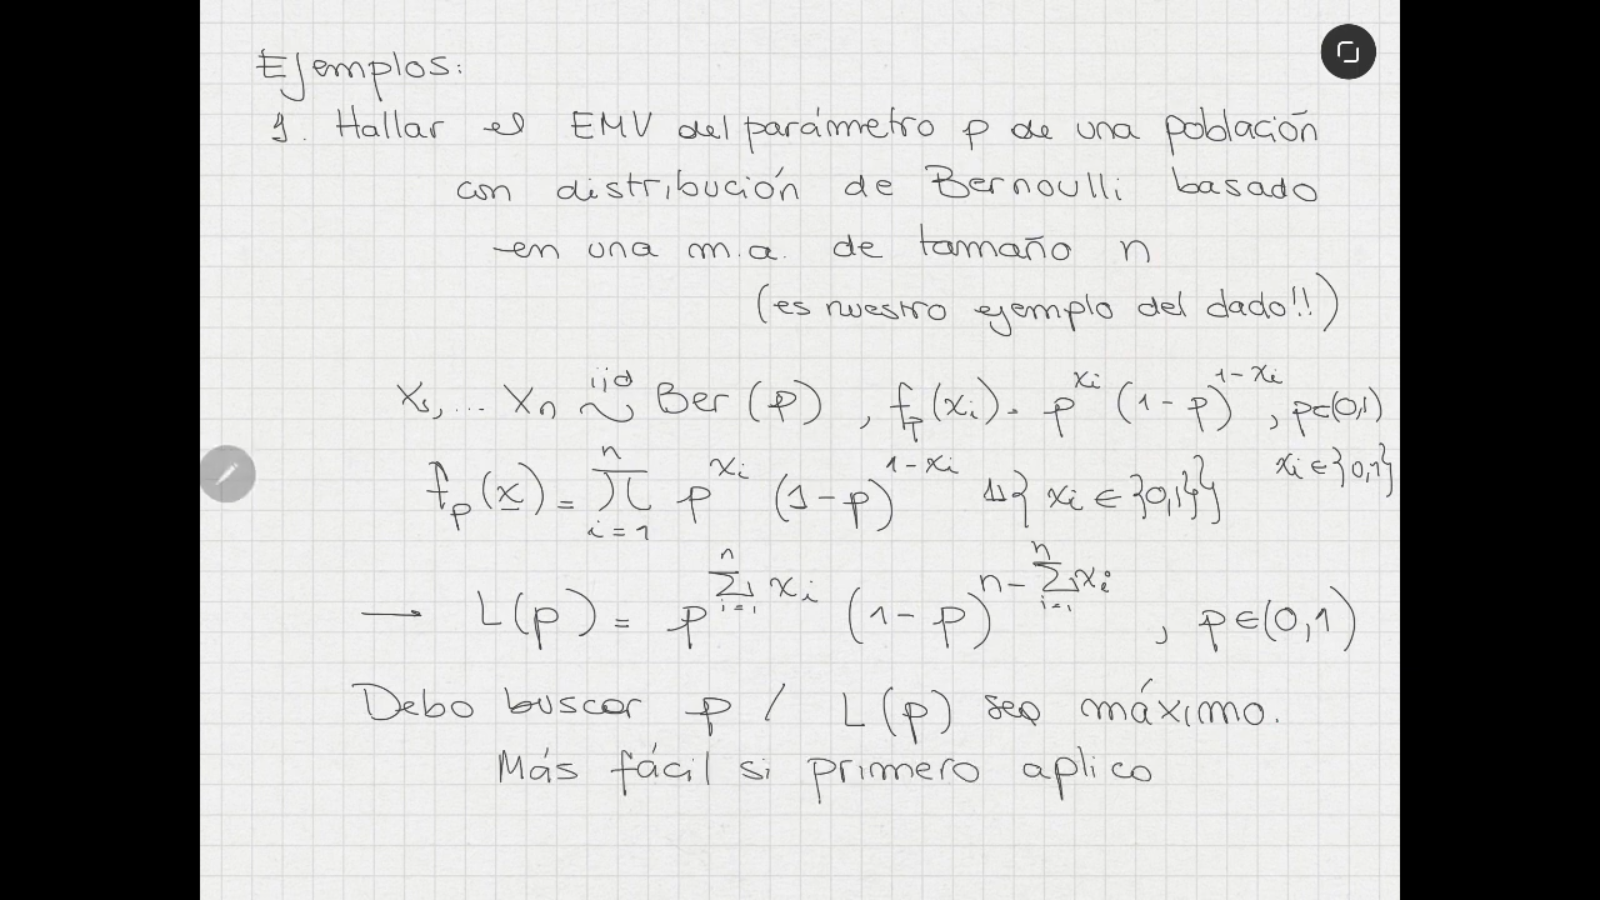 Ejemplos:
1. Hallar el EMV del parámetro p de una población
con distribución de Bernoulli basado
en una m.a. de tamaño n
(es nuestro ejemplo del dado!!)
X₁, ... Xₙ ~ⁱⁱᵈ Ber (p) , f_p(xᵢ) = p^{xᵢ} (1-p)^{1-xᵢ}, p∈(0,1)
xᵢ ∈ {0,1}
f_p(x) = ∏_{i=1}^{n} p^{xᵢ} (1-p)^{1-xᵢ} 𝟙{ xᵢ ∈ {0,1}}
→ L(p) = p^{∑_{i=1}^{n} xᵢ} (1-p)^{n - ∑_{i=1}^{n} xᵢ} , p∈(0,1)
Debo buscar p / L(p) sea máximo.
Más fácil si primero aplico